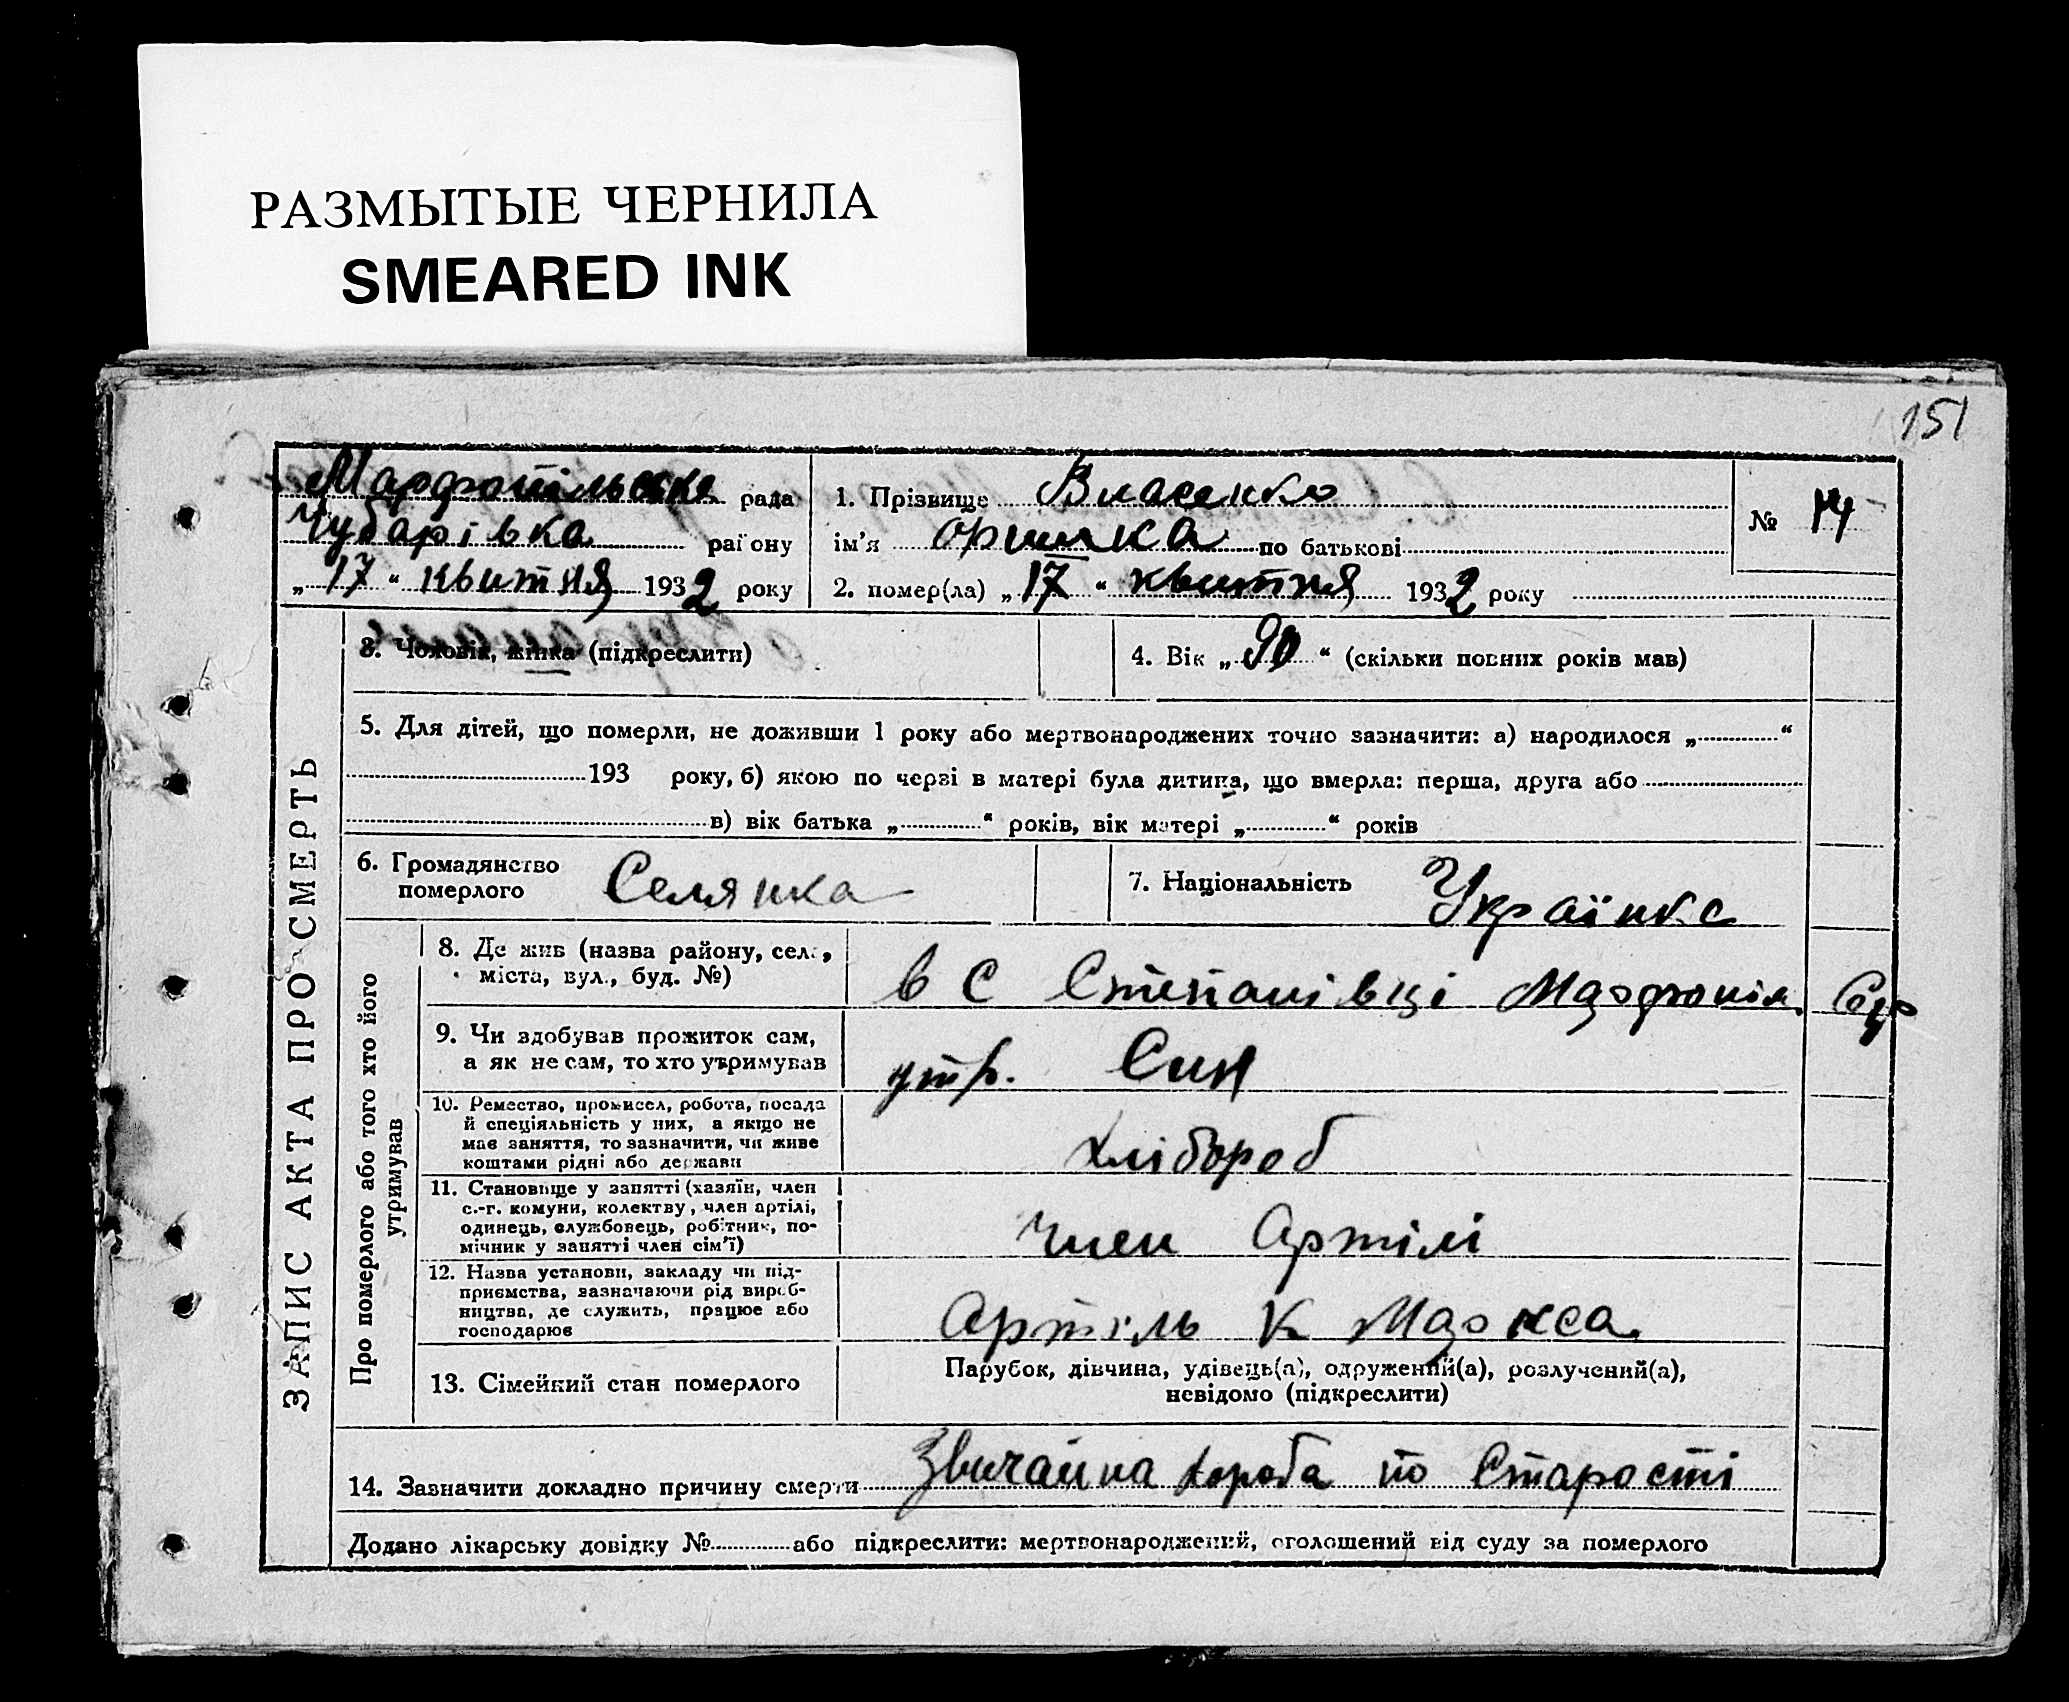 РАЗМЫТЫЕ ЧЕРНИЛА
SMEARED INK
151
Марфопільська рада
Чубарівка району
„17“ квитня 1932 року
1. Прізвище Власенко
ім’я оришка по батькові
2. помер(ла) „17“ квитня 1932 року
№ 14
ЗАПИС АКТА ПРО СМЕРТЬ
3. Чоловік, жінка (підкреслити)
4. Вік „90“ (скільки повних років мав)
5. Для дітей, що померли, не доживши 1 року або мертвонароджених точно зазначити: а) народилося „ “
193 року, б) якою по черзі в матері була дитина, що вмерла: перша, друга або
в) вік батька „ “ років, вік матері „ “ років
6. Громадянство
померлого Селянка
7. Національність Українка
Про померлого або того хто його
утримував
8. Де жив (назва району, села,
міста, вул., буд. №)
в С Степанівці Марфопіл.
9. Чи здобував прожиток сам,
а як не сам, то хто утримував
утр. Син
10. Ремество, промисел, робота, посада
й спеціяльність у них, а якщо не
мав заняття, то зазначити, чи живе
коштами рідні або держави
Хлібороб
11. Становище у занятті (хазяїн, член
с.-г. комуни, колективу, член артілі,
одинець, службовець, робітник, по-
мічник у занятті член сім’ї)
Член Артілі
12. Назва установи, закладу чи під-
приємства, зазначаючи рід вироб-
ництва, де служить, працює або
господарює
Артіль К Маркса.
13. Сімейний стан померлого
Парубок, дівчина, удівець(а), одружений(а), розлучений(а),
невідомо (підкреслити)
14. Зазначити докладно причину смерти Звичайна хороба по Старості
Додано лікарську довідку № або підкреслити: мертвонароджений, оголошений від суду за померлого